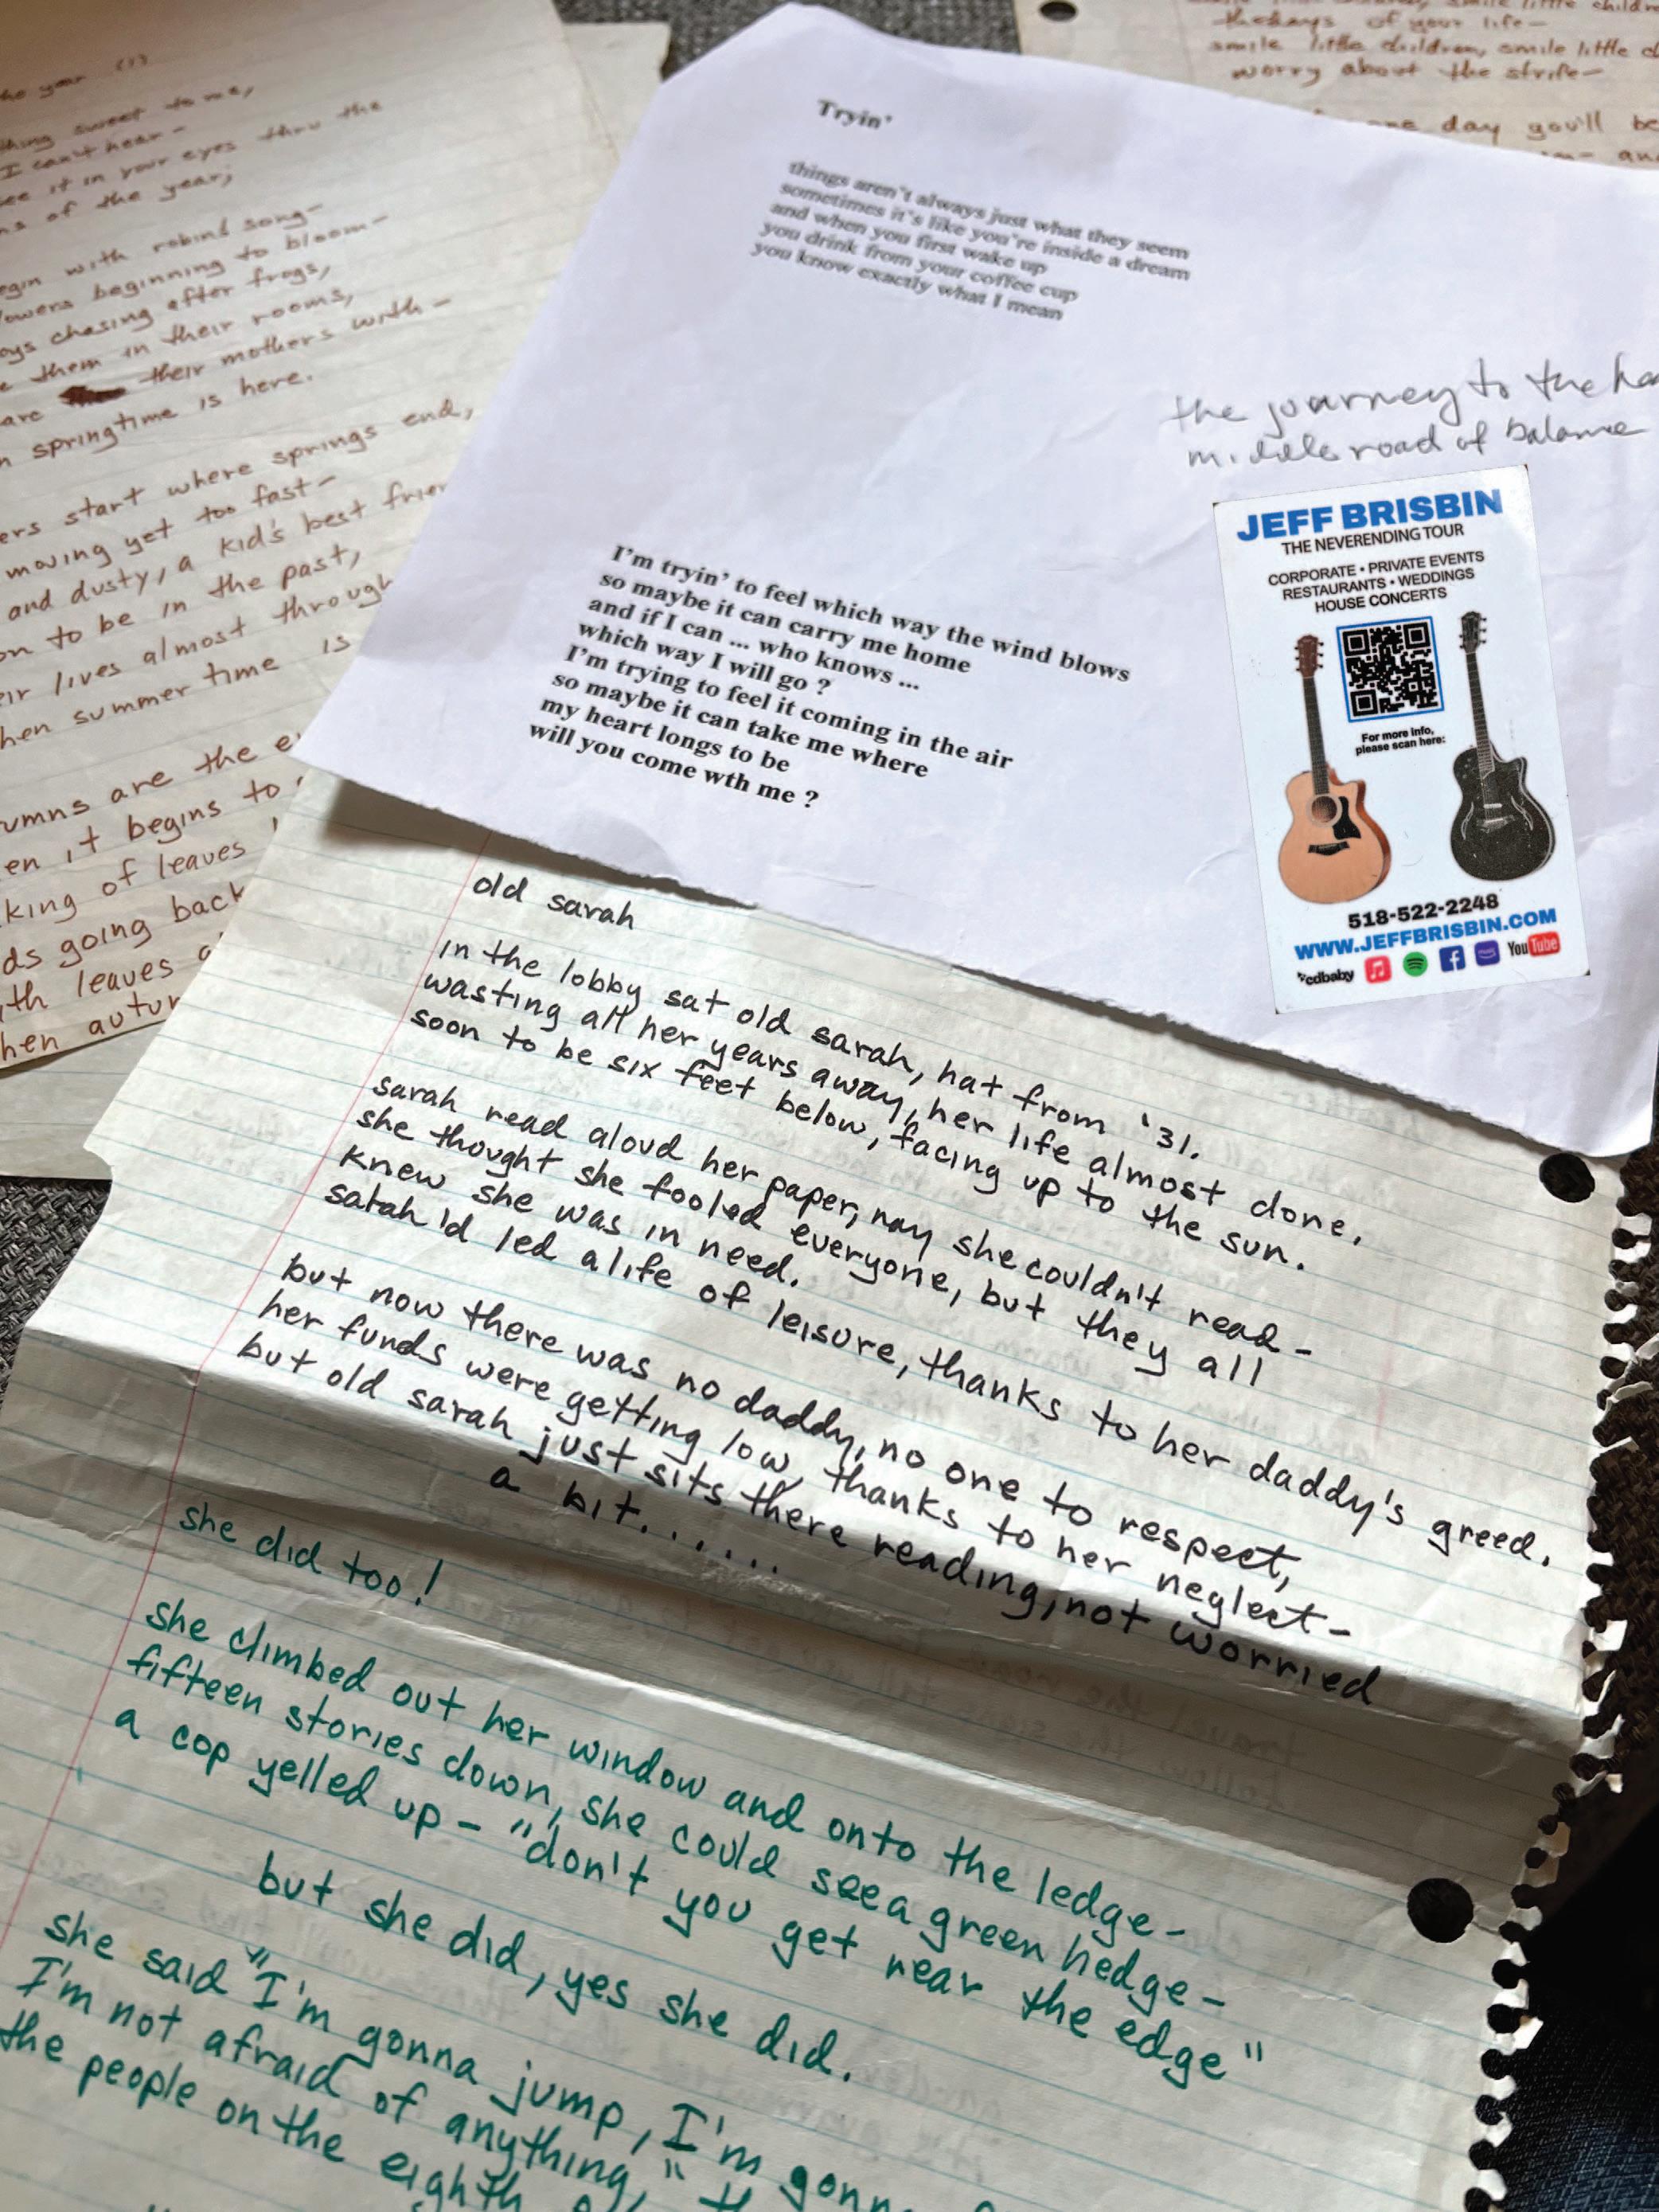 the year (1)
thing sweet to me,
I can't hear-
see it in your eyes thru the
of the year;
begin with robins song-
flowers beginning to bloom-
boys chasing after frogs,
them in their rooms,
are their mothers with-
springtime is here.
start where springs end,
moving yet too fast-
and dusty, a kid's best
to be in the past,
lives almost through
when summer time is
are the
it begins to
of leaves
going back
leaves
when
smile little
the days of your life-
smile little children, smile little
worry about the strife-
one day you'll be
Tryin'
things aren't always just what they seem
sometimes it's like you're inside a dream
and when you first wake up
you drink from your coffee cup
you know exactly what I mean
the journey to the
middle road of balance
I'm tryin' to feel which way the wind blows
so maybe it can carry me home
and if I can ... who knows ...
which way I will go ?
I'm trying to feel it coming in the air
so maybe it can take me where
my heart longs to be
will you come wth me ?
JEFF BRISBIN
THE NEVERENDING TOUR
CORPORATE • PRIVATE EVENTS
RESTAURANTS • WEDDINGS
HOUSE CONCERTS
For more info,
please scan here:
518-522-2248
WWW.JEFFBRISBIN.COM
cdbaby YouTube
old sarah
in the lobby sat old sarah, hat from '31.
wasting all her years away, her life almost done,
soon to be six feet below, facing up to the sun.
sarah read aloud her paper, nay she couldn't read-
she thought she fooled everyone, but they all
knew she was in need.
sarah'd led a life of leisure, thanks to her daddy's greed.
but now there was no daddy, no one to respect,
her funds were getting low, thanks to her neglect-
but old sarah just sits there reading, not worried
a bit.......
she did too!
she climbed out her window and onto the ledge-
fifteen stories down, she could see a green hedge-
a cop yelled up - "don't you get near the edge"
but she did, yes she did.
she said "I'm gonna jump, I'm gonna
I'm not afraid of anything,"
the people on the eighth